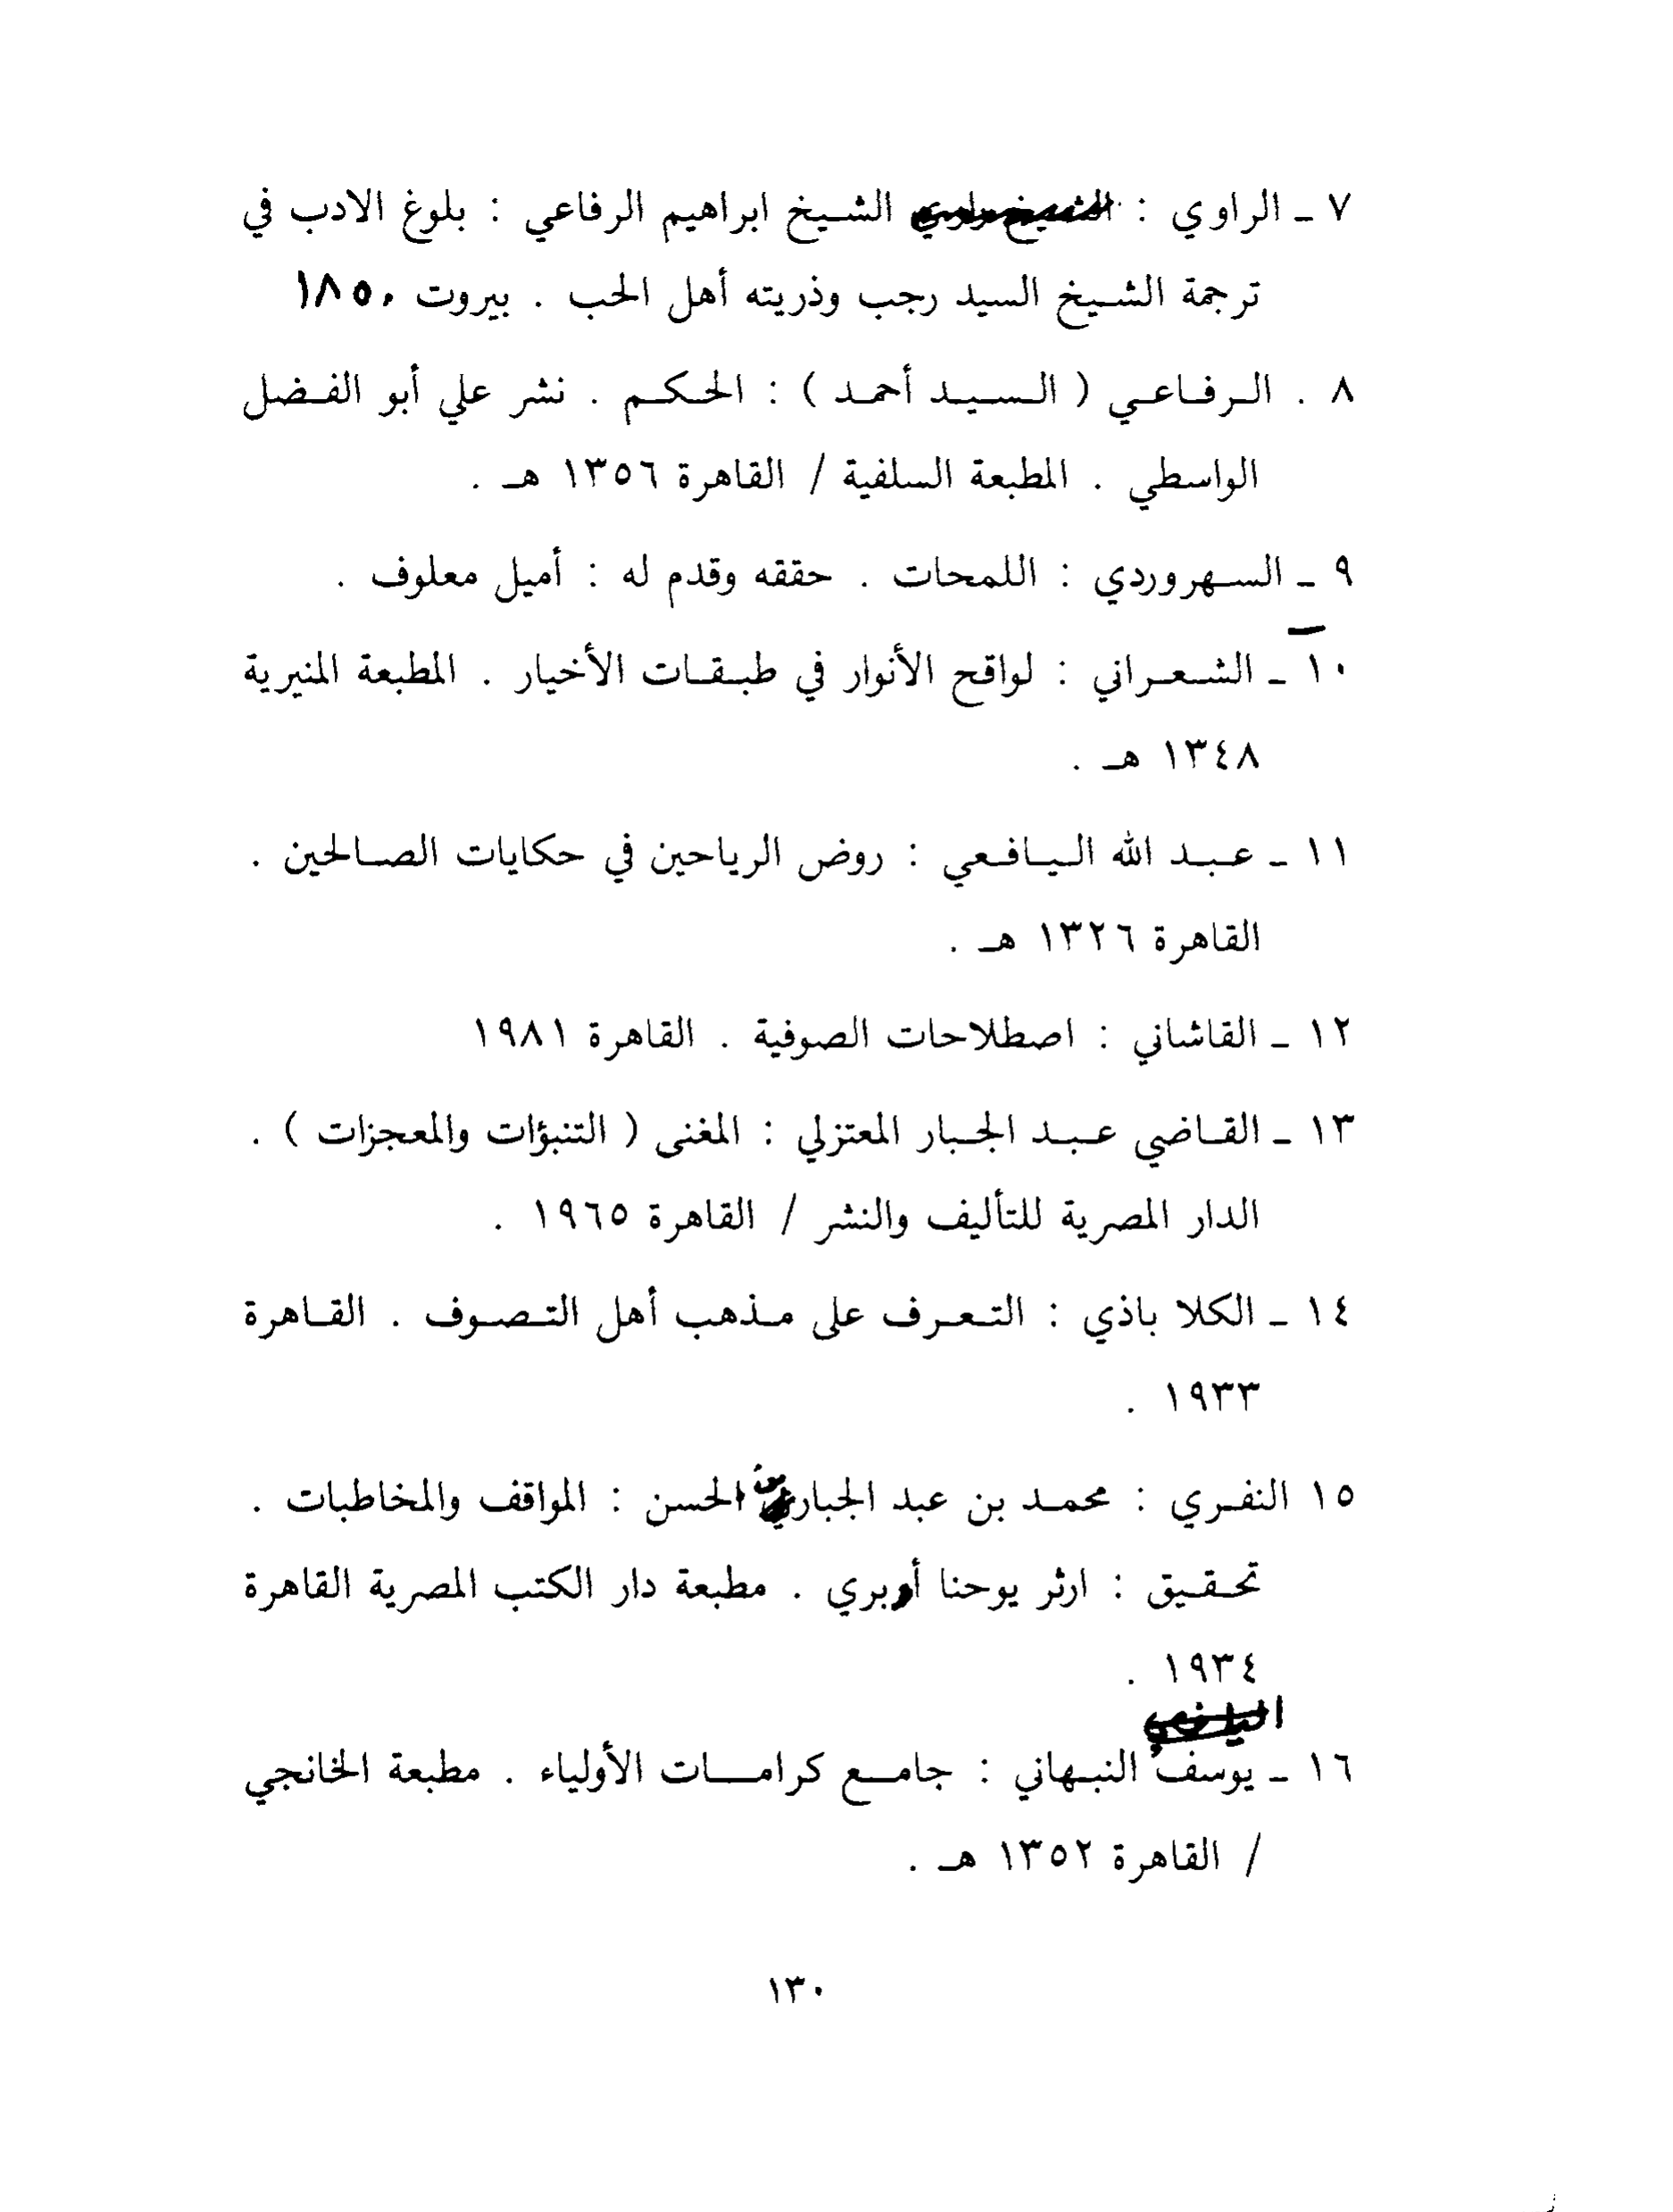 ٧ ـ الراوي : الشيخ ابراهيم الرفاعي : بلوغ الادب في
ترجمة الشيخ السيد رجب وذريته أهل الحب . بيروت ١٨٥٠
٨ . الرفاعي ( السيد أحمد ) : الحكم . نشر علي أبو الفضل
الواسطي . المطبعة السلفية / القاهرة ١٣٥٦ هـ .
٩ ـ السهروردي : اللمحات . حققه وقدم له : أميل معلوف .
١٠ ـ الشعراني : لواقح الأنوار في طبقات الأخيار . المطبعة المنيرية
١٣٤٨ هـ .
١١ ـ عبد الله اليافعي : روض الرياحين في حكايات الصالحين .
القاهرة ١٣٢٦ هـ .
١٢ ـ القاشاني : اصطلاحات الصوفية . القاهرة ١٩٨١
١٣ ـ القاضي عبد الجبار المعتزلي : المغنى ( التنبؤات والمعجزات ) .
الدار المصرية للتأليف والنشر / القاهرة ١٩٦٥ .
١٤ ـ الكلا باذي : التعرف على مذهب أهل التصوف . القاهرة
١٩٣٣ .
١٥ النفري : محمد بن عبد الجبار بن الحسن : المواقف والمخاطبات .
تحقيق : ارثر يوحنا أربري . مطبعة دار الكتب المصرية القاهرة
١٩٣٤ .
١٦ ـ يوسف النبهاني : جامع كرامات الأولياء . مطبعة الخانجي
/ القاهرة ١٣٥٢ هـ .
١٣٠